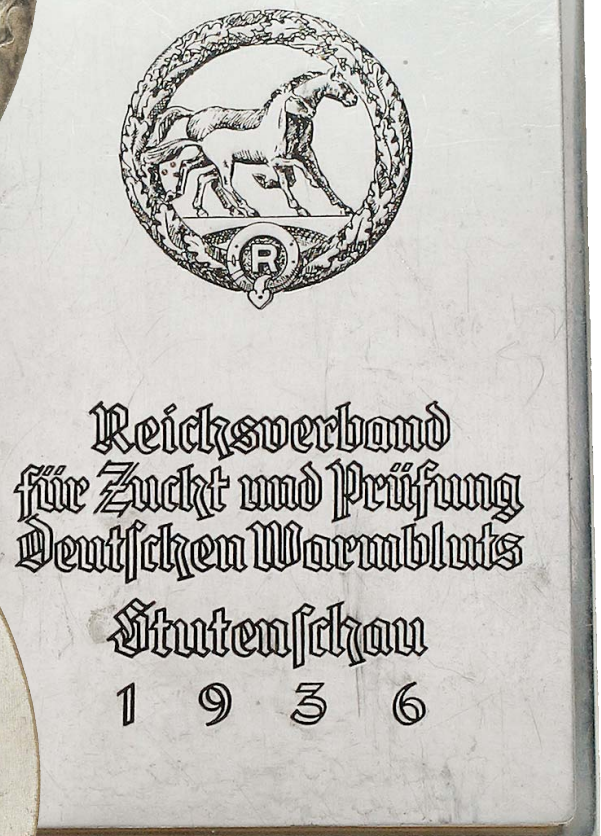 R
Reichsverband
für Zucht und Prüfung
Deutſchen Warmbluts
Stutenſchau
1936